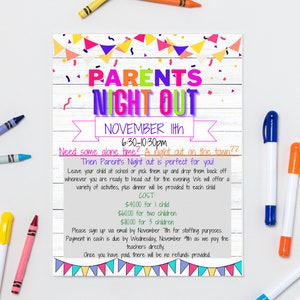 PARENTS
NIGHT OUT
NOVEMBER 11th
6:30-10:30pm
Need some alone time? A night out on the town??
Then Parent's Night out is perfect for you!
Leave your child at school or pick them up and drop them back off
whenever you are ready to head out for the evening. We will offer a
variety of activities, plus dinner will be provided to each child.
COST:
$40.00 for 1 child
$60.00 for two children
$80.00 for 3 children
Please sign up via email by November 7th for staffing purposes.
Payment in cash is due by Wednesday, November 9th as we pay the
teachers directly.
Once you have paid, there will be no refunds provided.